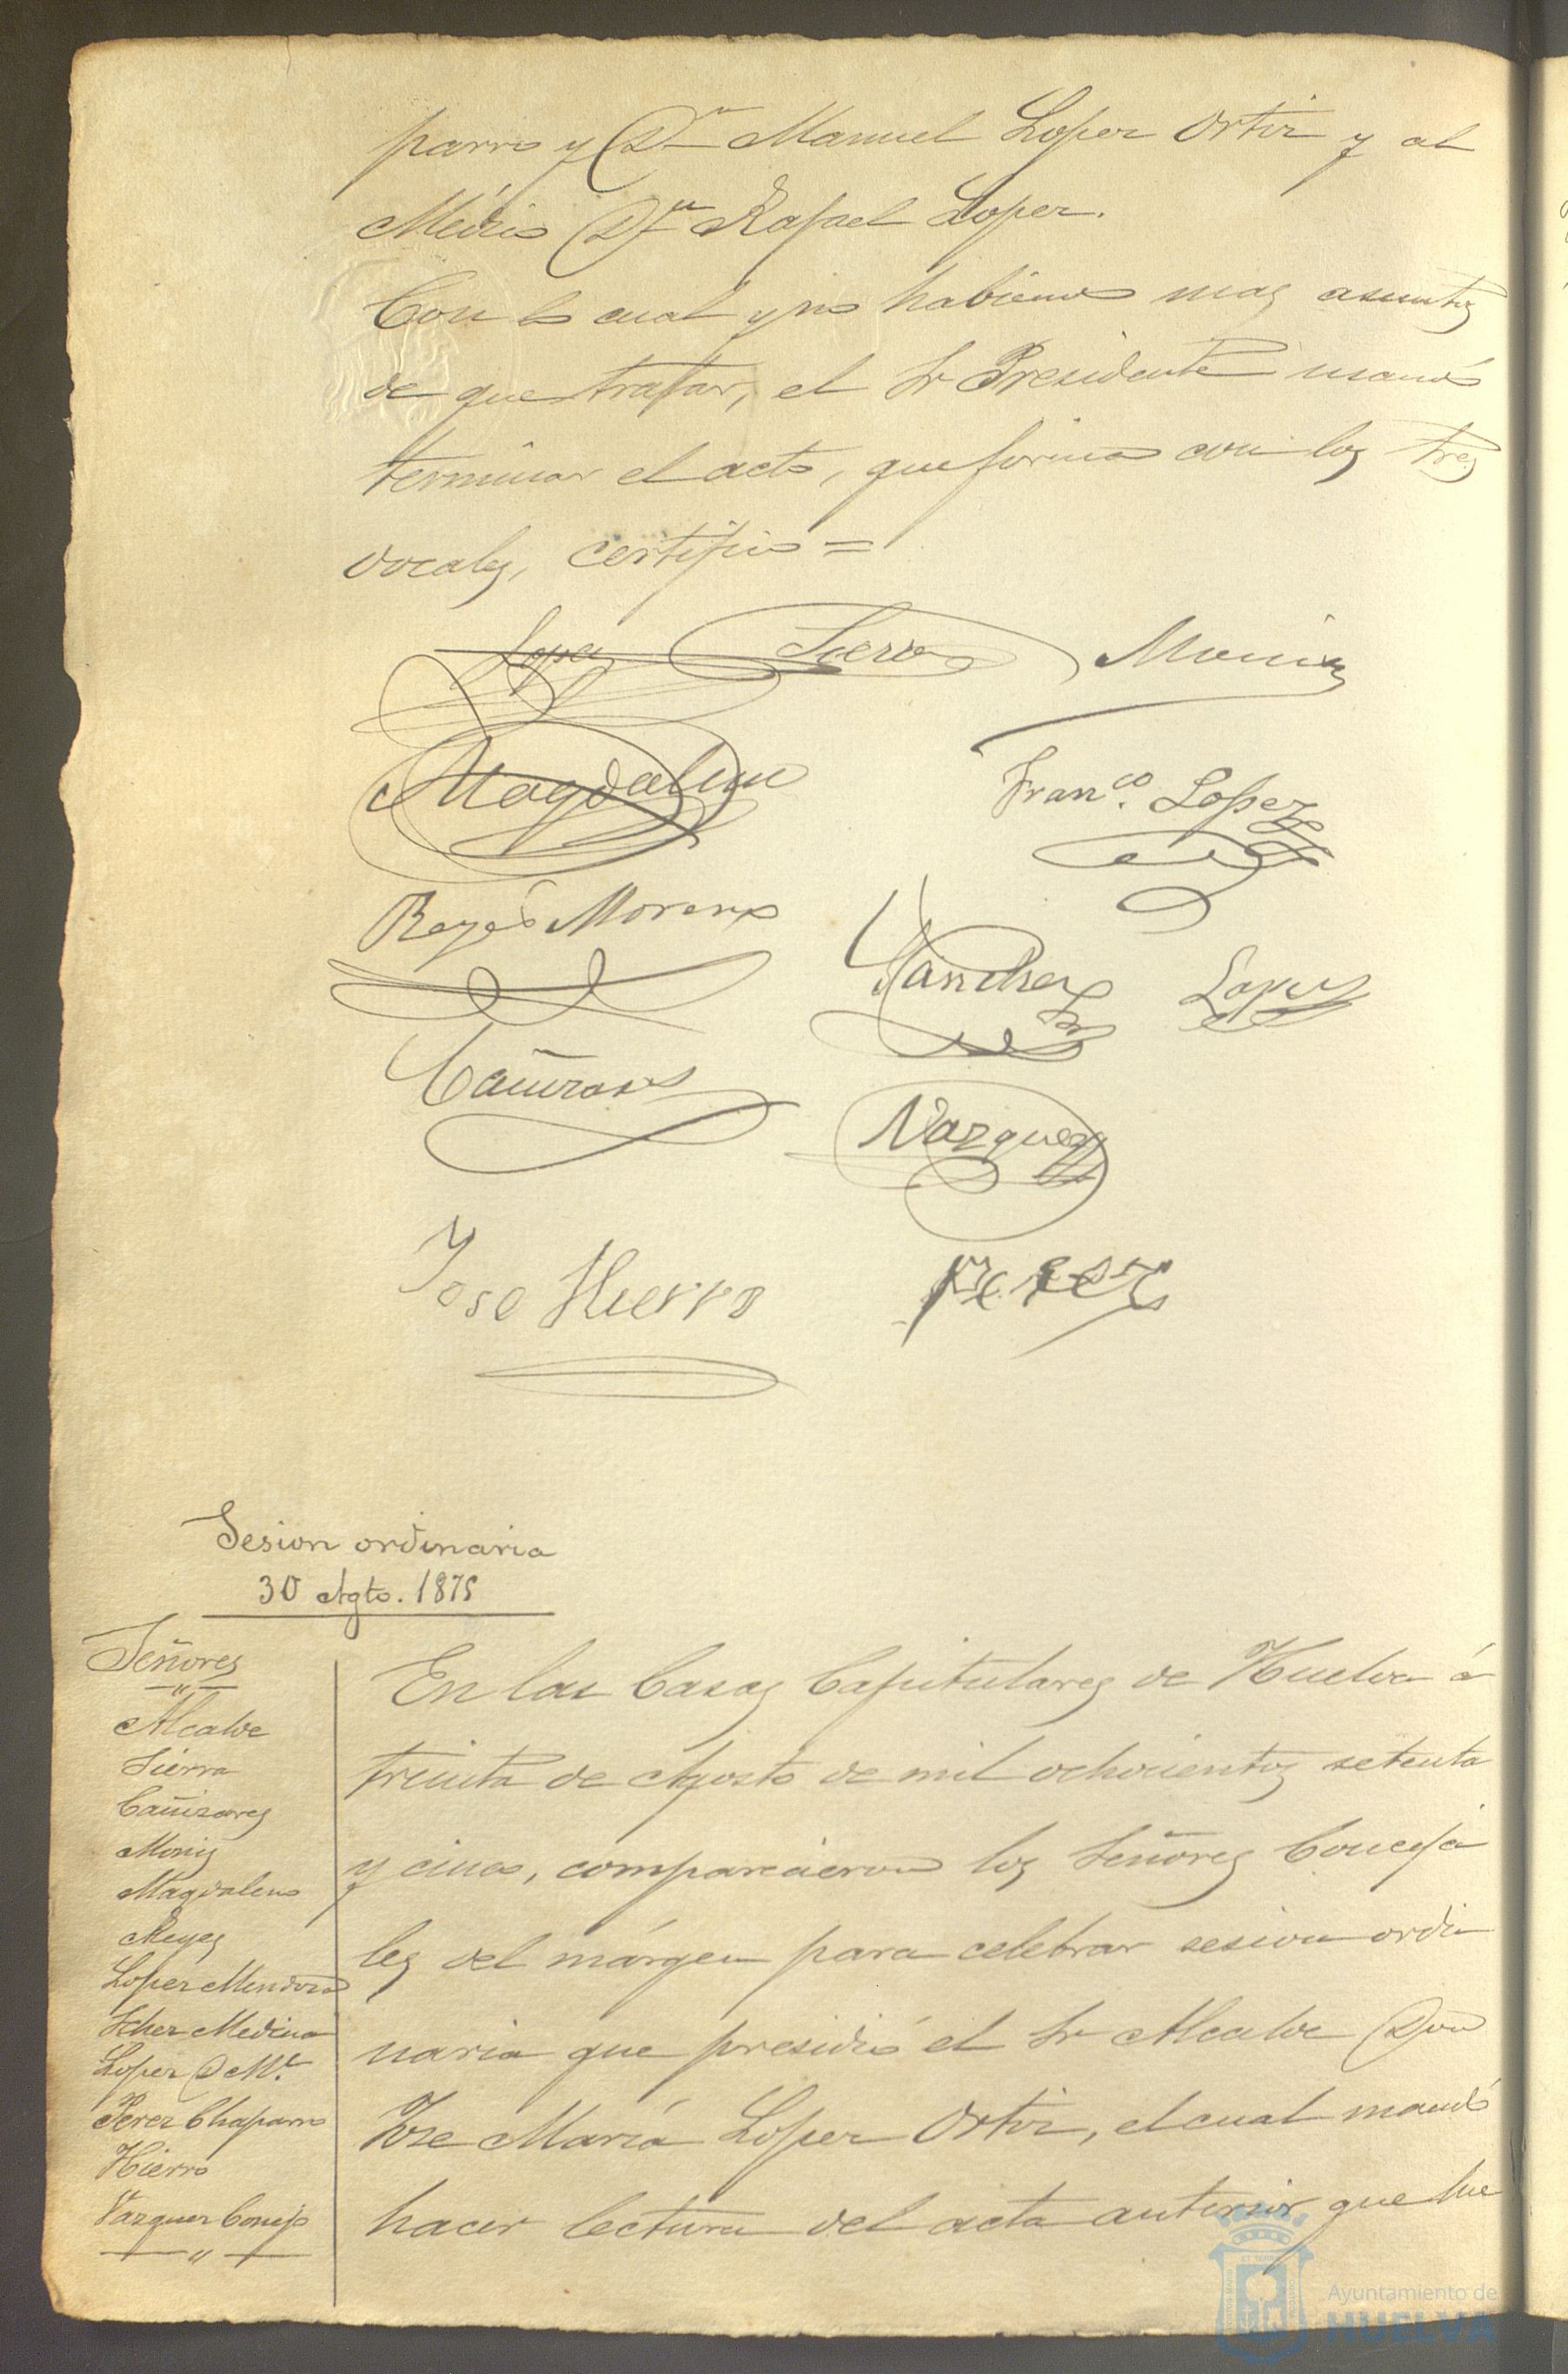 parro y Dn Manuel Lopez Ortiz y al
Médico Dn Rafael Lopez.
Con lo cual y no habiendo mas asuntos
de que tratar, el Sr Presidente mandó
terminar el acto, que firma con los tres
vocales, certifico =
Lopez Sierra Moniz
Magdaleno Franco. Lopez
Reyes Moreno Sanchez Lopez
Cañizares Vazquez
Jose Hierro Perez
Sesion ordinaria
30 Agto. 1875
Señores
Alcalde
Sierra
Cañizares
Moniz
Magdaleno
Reyes
Lopez Mendoza
Schez Medina
Lopez D Ml
Perez Chaparro
Hierro
Vazquez Conejo
En las Casas Capitulares de Huelva á
treinta de Agosto de mil ochocientos setenta
y cinco, comparecieron los Señores Conceja
les del márgen para celebrar sesion ordi
naria que presidió el Sr Alcalde Don
Jose María Lopez Ortiz, el cual mandó
hacer lectura del acta anterior que fue
Ayuntamiento de
HUELVA